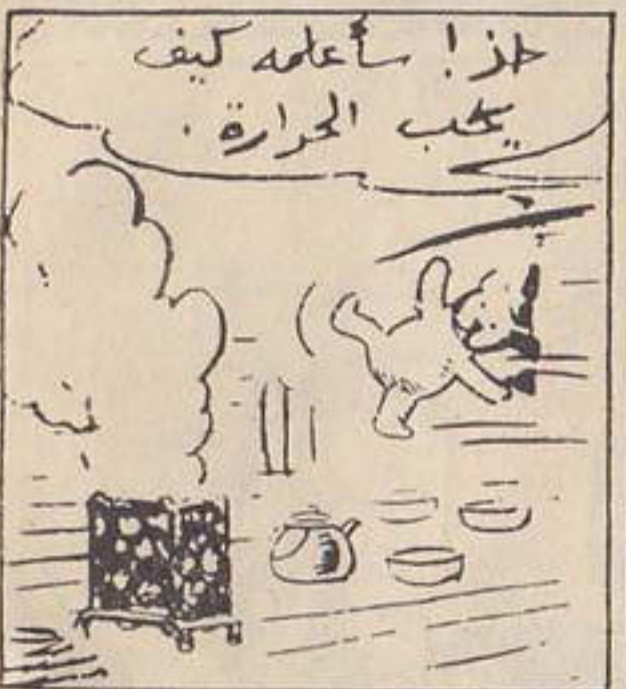 خذ! سأعلمه كيف
يحب الحرارة.